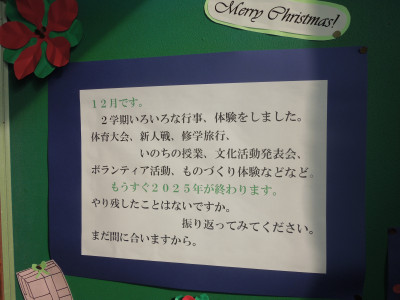 Merry Christmas!
１２月です。
２学期いろいろな行事、体験をしました。
体育大会、新人戦、修学旅行、
いのちの授業、文化活動発表会、
ボランティア活動、ものづくり体験などなど。
もうすぐ２０２５年が終わります。
やり残したことはないですか。
振り返ってみてください。
まだ間に合いますから。